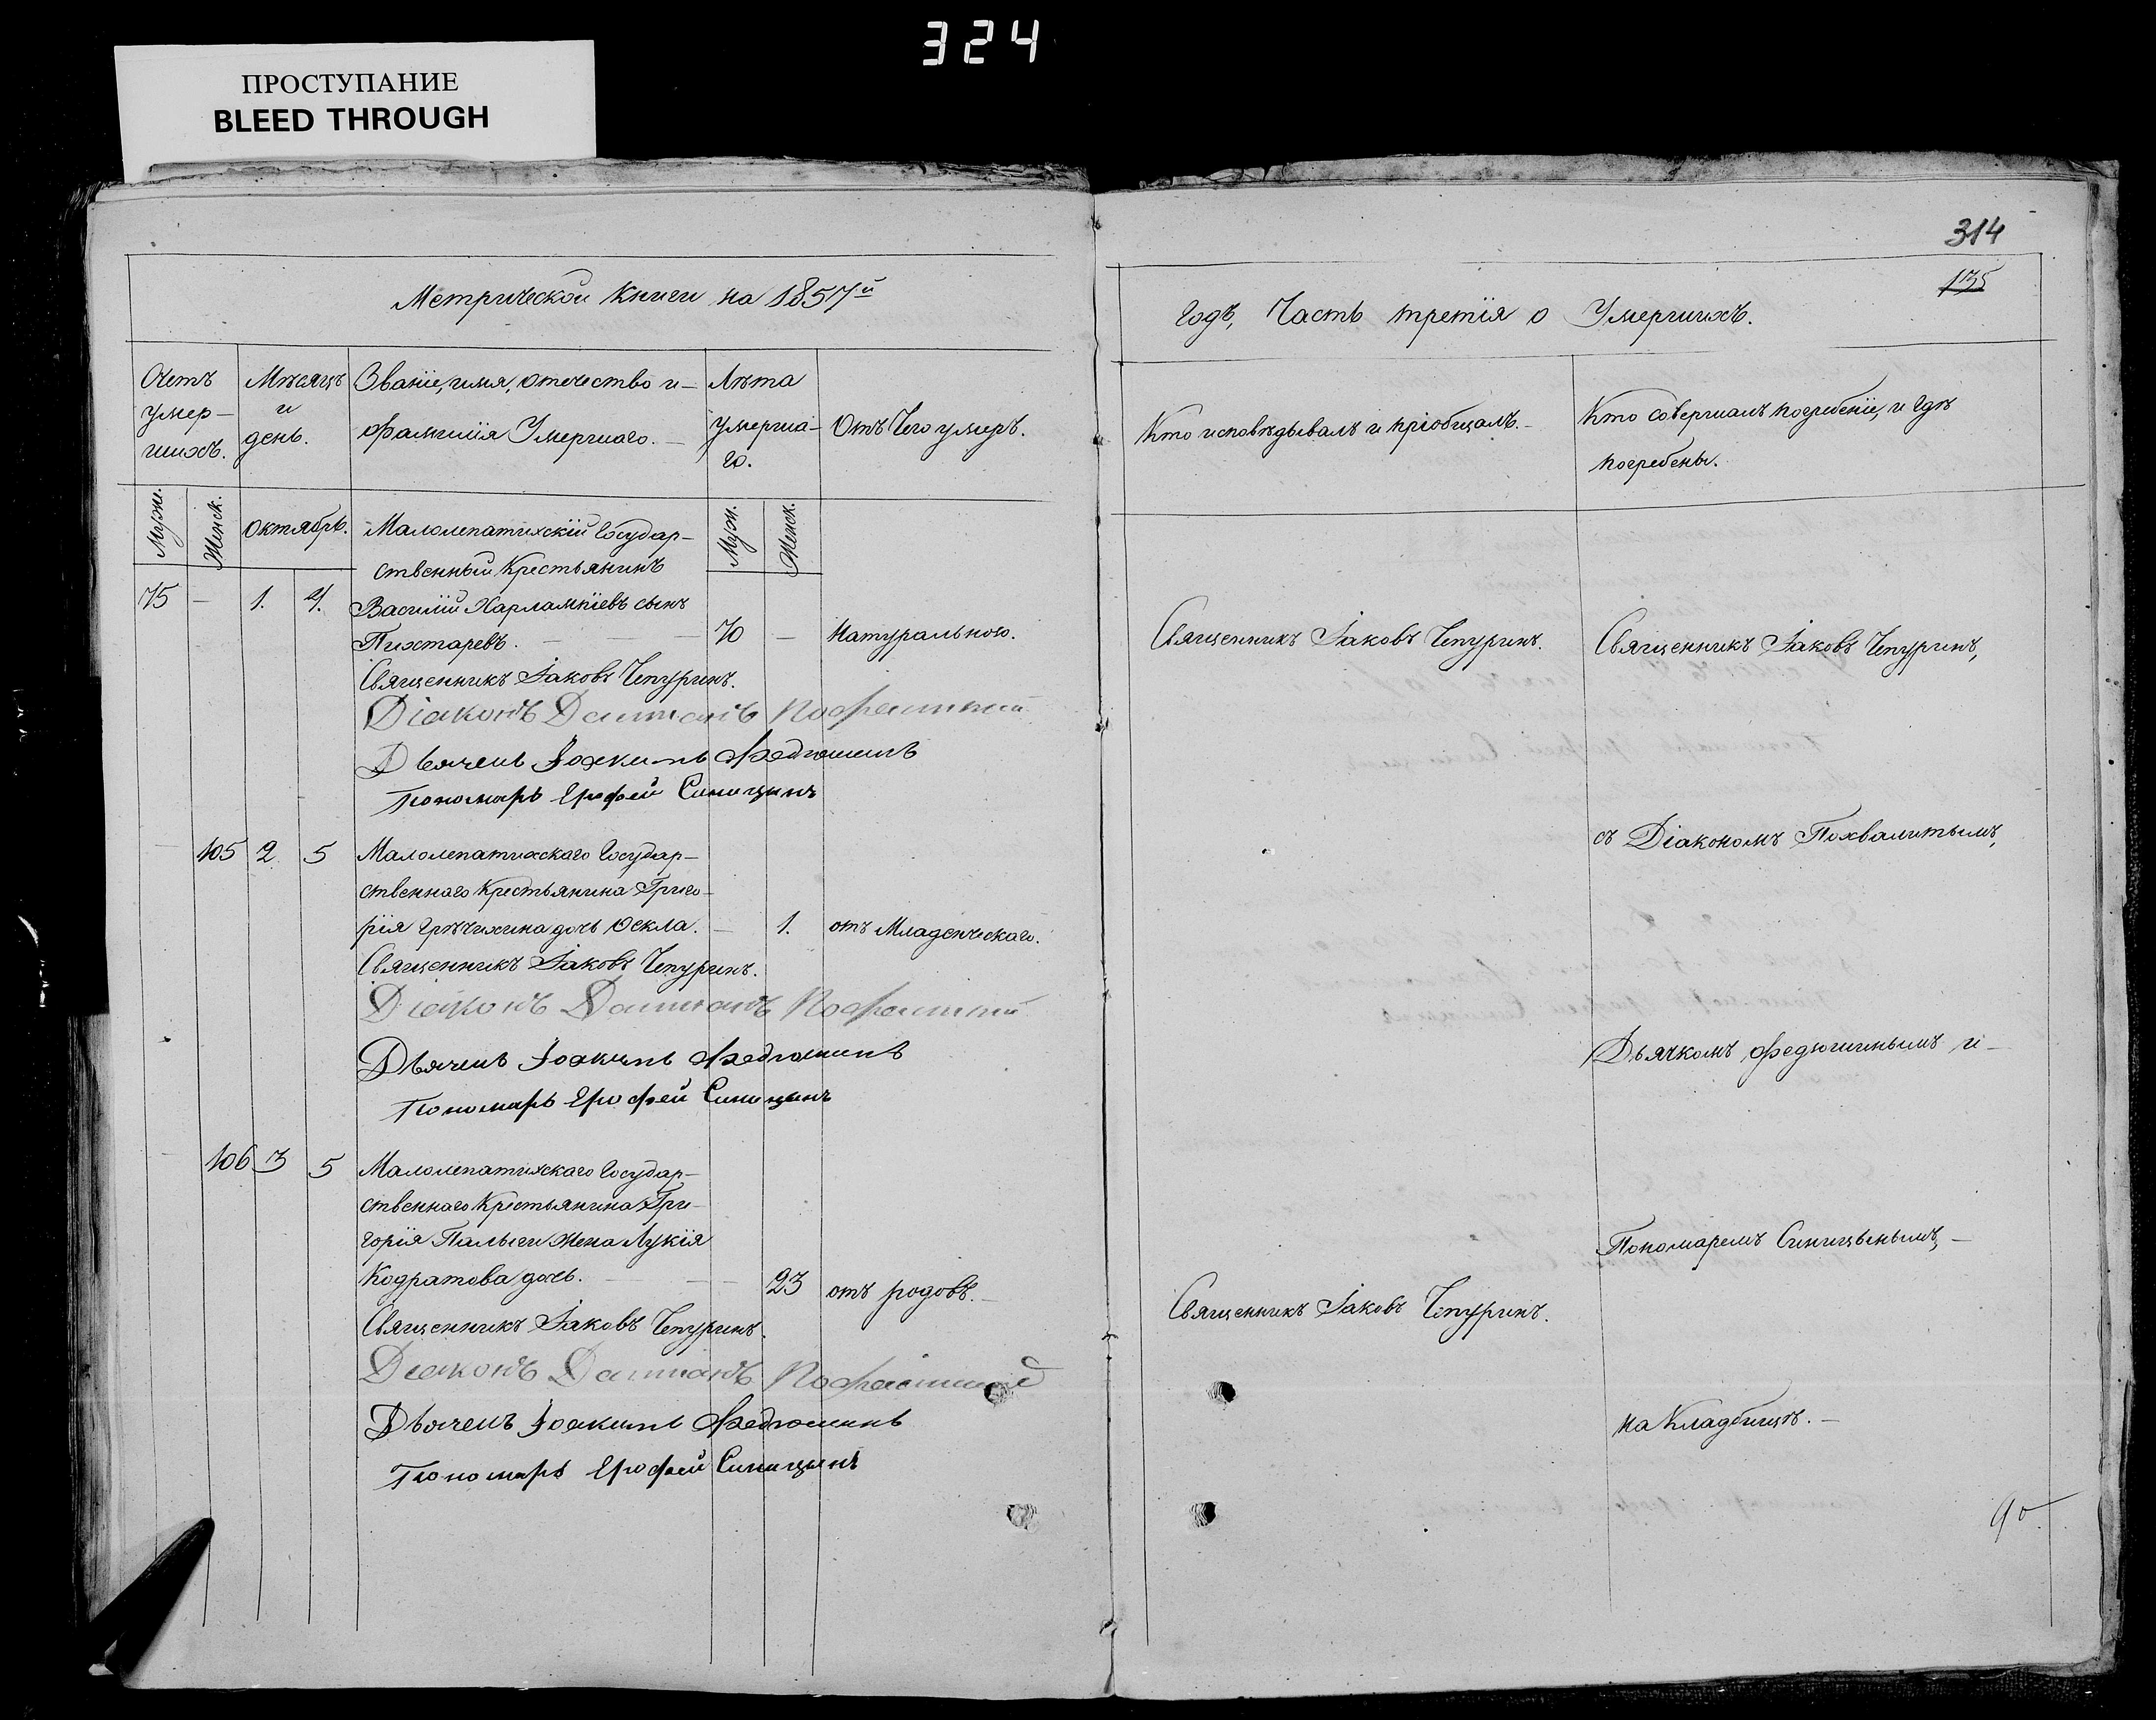 324
ПРОСТУПАНИЕ
BLEED THROUGH
Метрической книги на 1857й
Счетъ умер-шихъ.
Мѣсяцъ и день.
Званіе, имя, отечество и фамилія Умершаго.
Лѣта умерша-го.
Отъ Чего умеръ.
Муж.
Женск.
Октябрь.
Муж.
Женск.
Малолепатихскій Государ-
ственный Крестьянинъ
75 - 1. 4. Василій Харлампіевъ сынъ
Пихтаревъ. 70 - Натурального.
Священникъ Іаковъ Чепуринъ.
Діаконъ Даміанъ
Дьячекъ Іоакимъ Федюшинъ
Пономарь Ерофей Синицынъ
105 2 5 Малолепатихскаго Государ-
ственнаго Крестьянина Григо-
рія Грѣчихина дочь Ѳекла. - 1. отъ Младенческаго.
Священникъ Іаковъ Чепуринъ.
Діаконъ Даміанъ
Дьячекъ Іоакимъ Федюшинъ
Пономарь Ерофей Синицынъ
106 3 5 Малолепатихскаго Государ-
ственнаго Крестьянина Гри-
горія Палыги жена Лукія
Кодратова дочь. - 23 отъ родовъ. -
Священникъ Іаковъ Чепуринъ.
Діаконъ Даміанъ
Дьячекъ Іоакимъ Федюшинъ
Пономарь Ерофей Синицынъ
314
135
Годъ, Часть третія о Умершихъ.
Кто исповѣдывалъ и пріобщалъ. -
Кто совершалъ погребеніе, и гдѣ
погребены.
Священникъ Іаковъ Чепуринъ.
Священникъ Іаковъ Чепуринъ,
съ Діакономъ Похвалитымъ,
Дьячкомъ Федюшинымъ и -
Пономаремъ Синицынымъ, -
Священникъ Іаковъ Чепуринъ.
на Кладбищѣ. -
90.